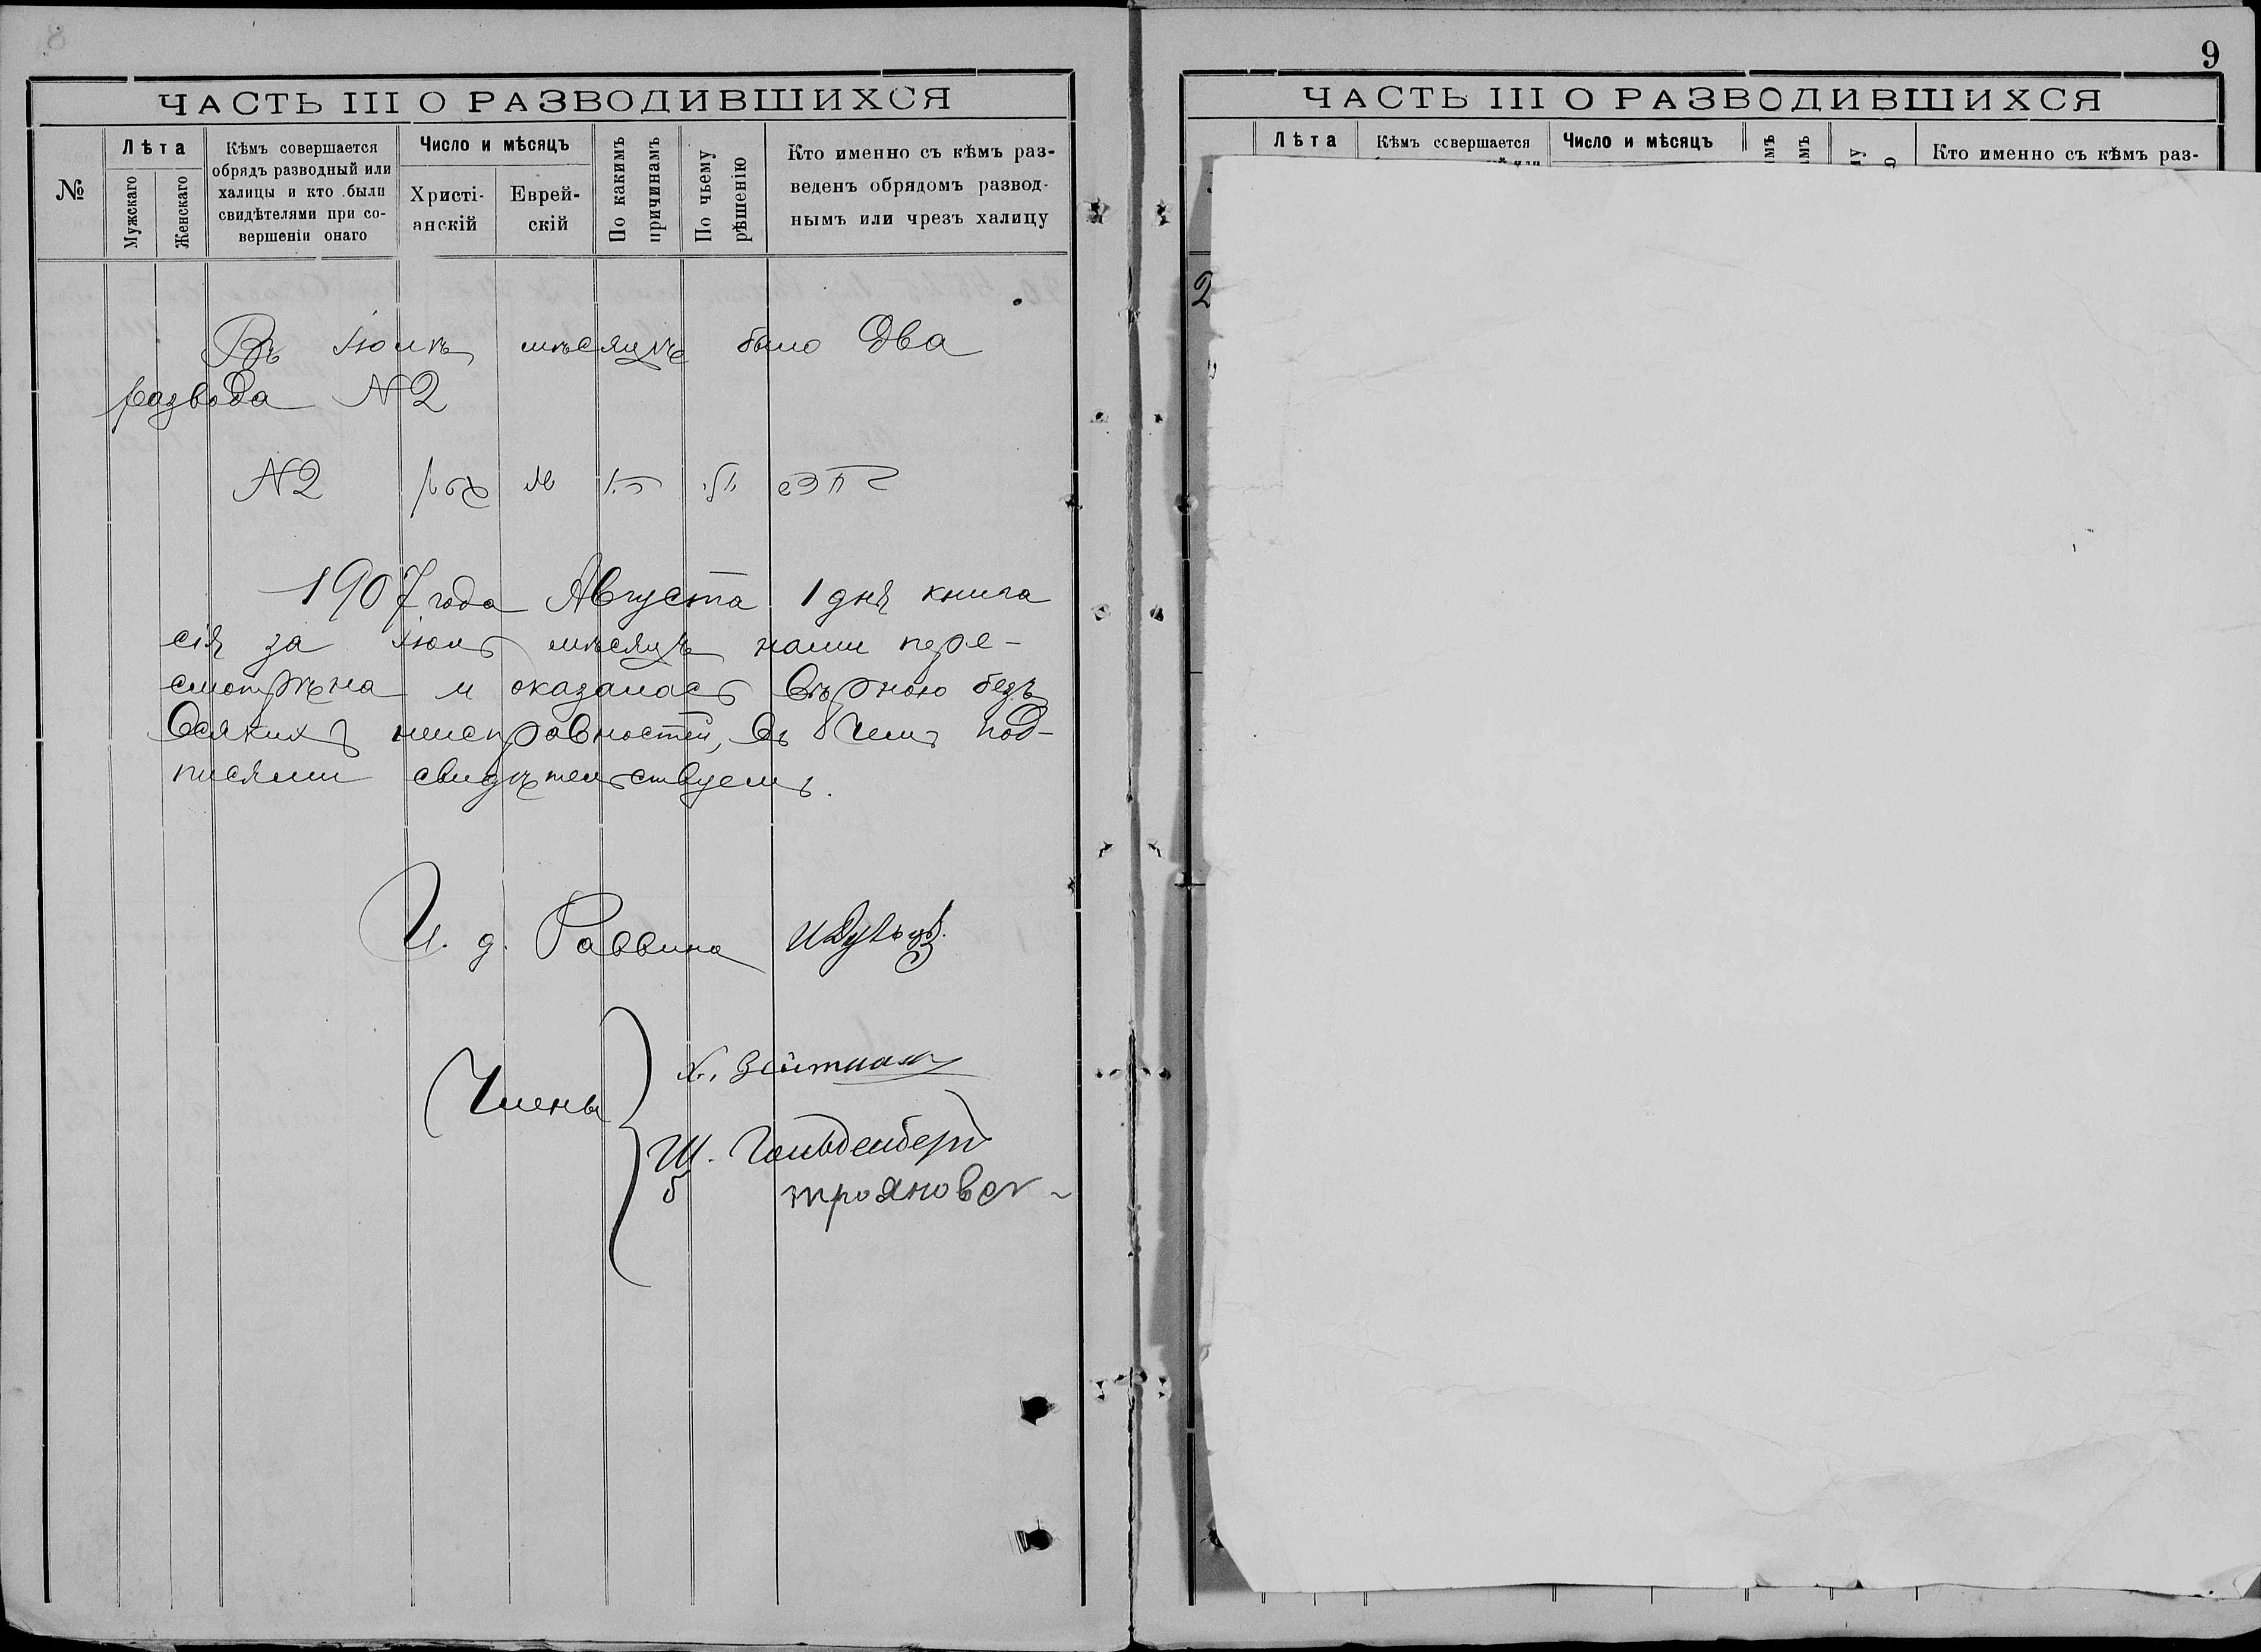 8
ЧАСТЬ III О РАЗВОДИВШИХСЯ
№
Лѣта
Мужскаго
Женскаго
Кѣмъ совершается
обрядъ разводный или
халицы и кто были
свидѣтелями при со-
вершеніи онаго
Число и мѣсяцъ
Христі-
анскій
Еврей-
скій
По какимъ
причинамъ
По чьему
рѣшенію
Кто именно съ кѣмъ раз-
веденъ обрядомъ развод-
нымъ или чрезъ халицу
Въ Іюлѣ мѣсяцѣ было два
развода №2
№2
1907 года Августа 1 дня книга
сія за Іюль мѣсяцъ нами пере-
смотрѣна и оказалась вѣрною безъ
всякихъ неисправностей, въ чемъ под-
писями свидѣтельствуемъ.
И. д. Раввина
Члены
Х. Зейтман
Ш. Гольденберг
Б Трояновск
9
ЧАСТЬ III О РАЗВОДИВШИХСЯ
Лѣта
Кѣмъ совершается
Число и мѣсяцъ
Кто именно съ кѣмъ раз-
2